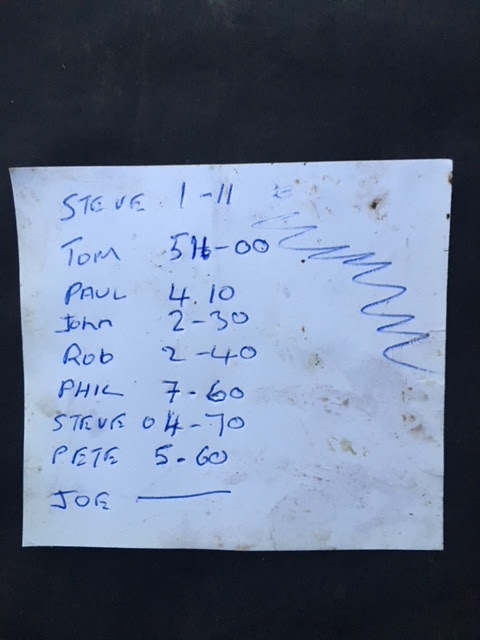 STEVE 1-11
TOM
PAUL 4.10
John 2-30
Rob 2-40
PHIL 7-60
STEVE O 4-70
PETE 5-60
JOE